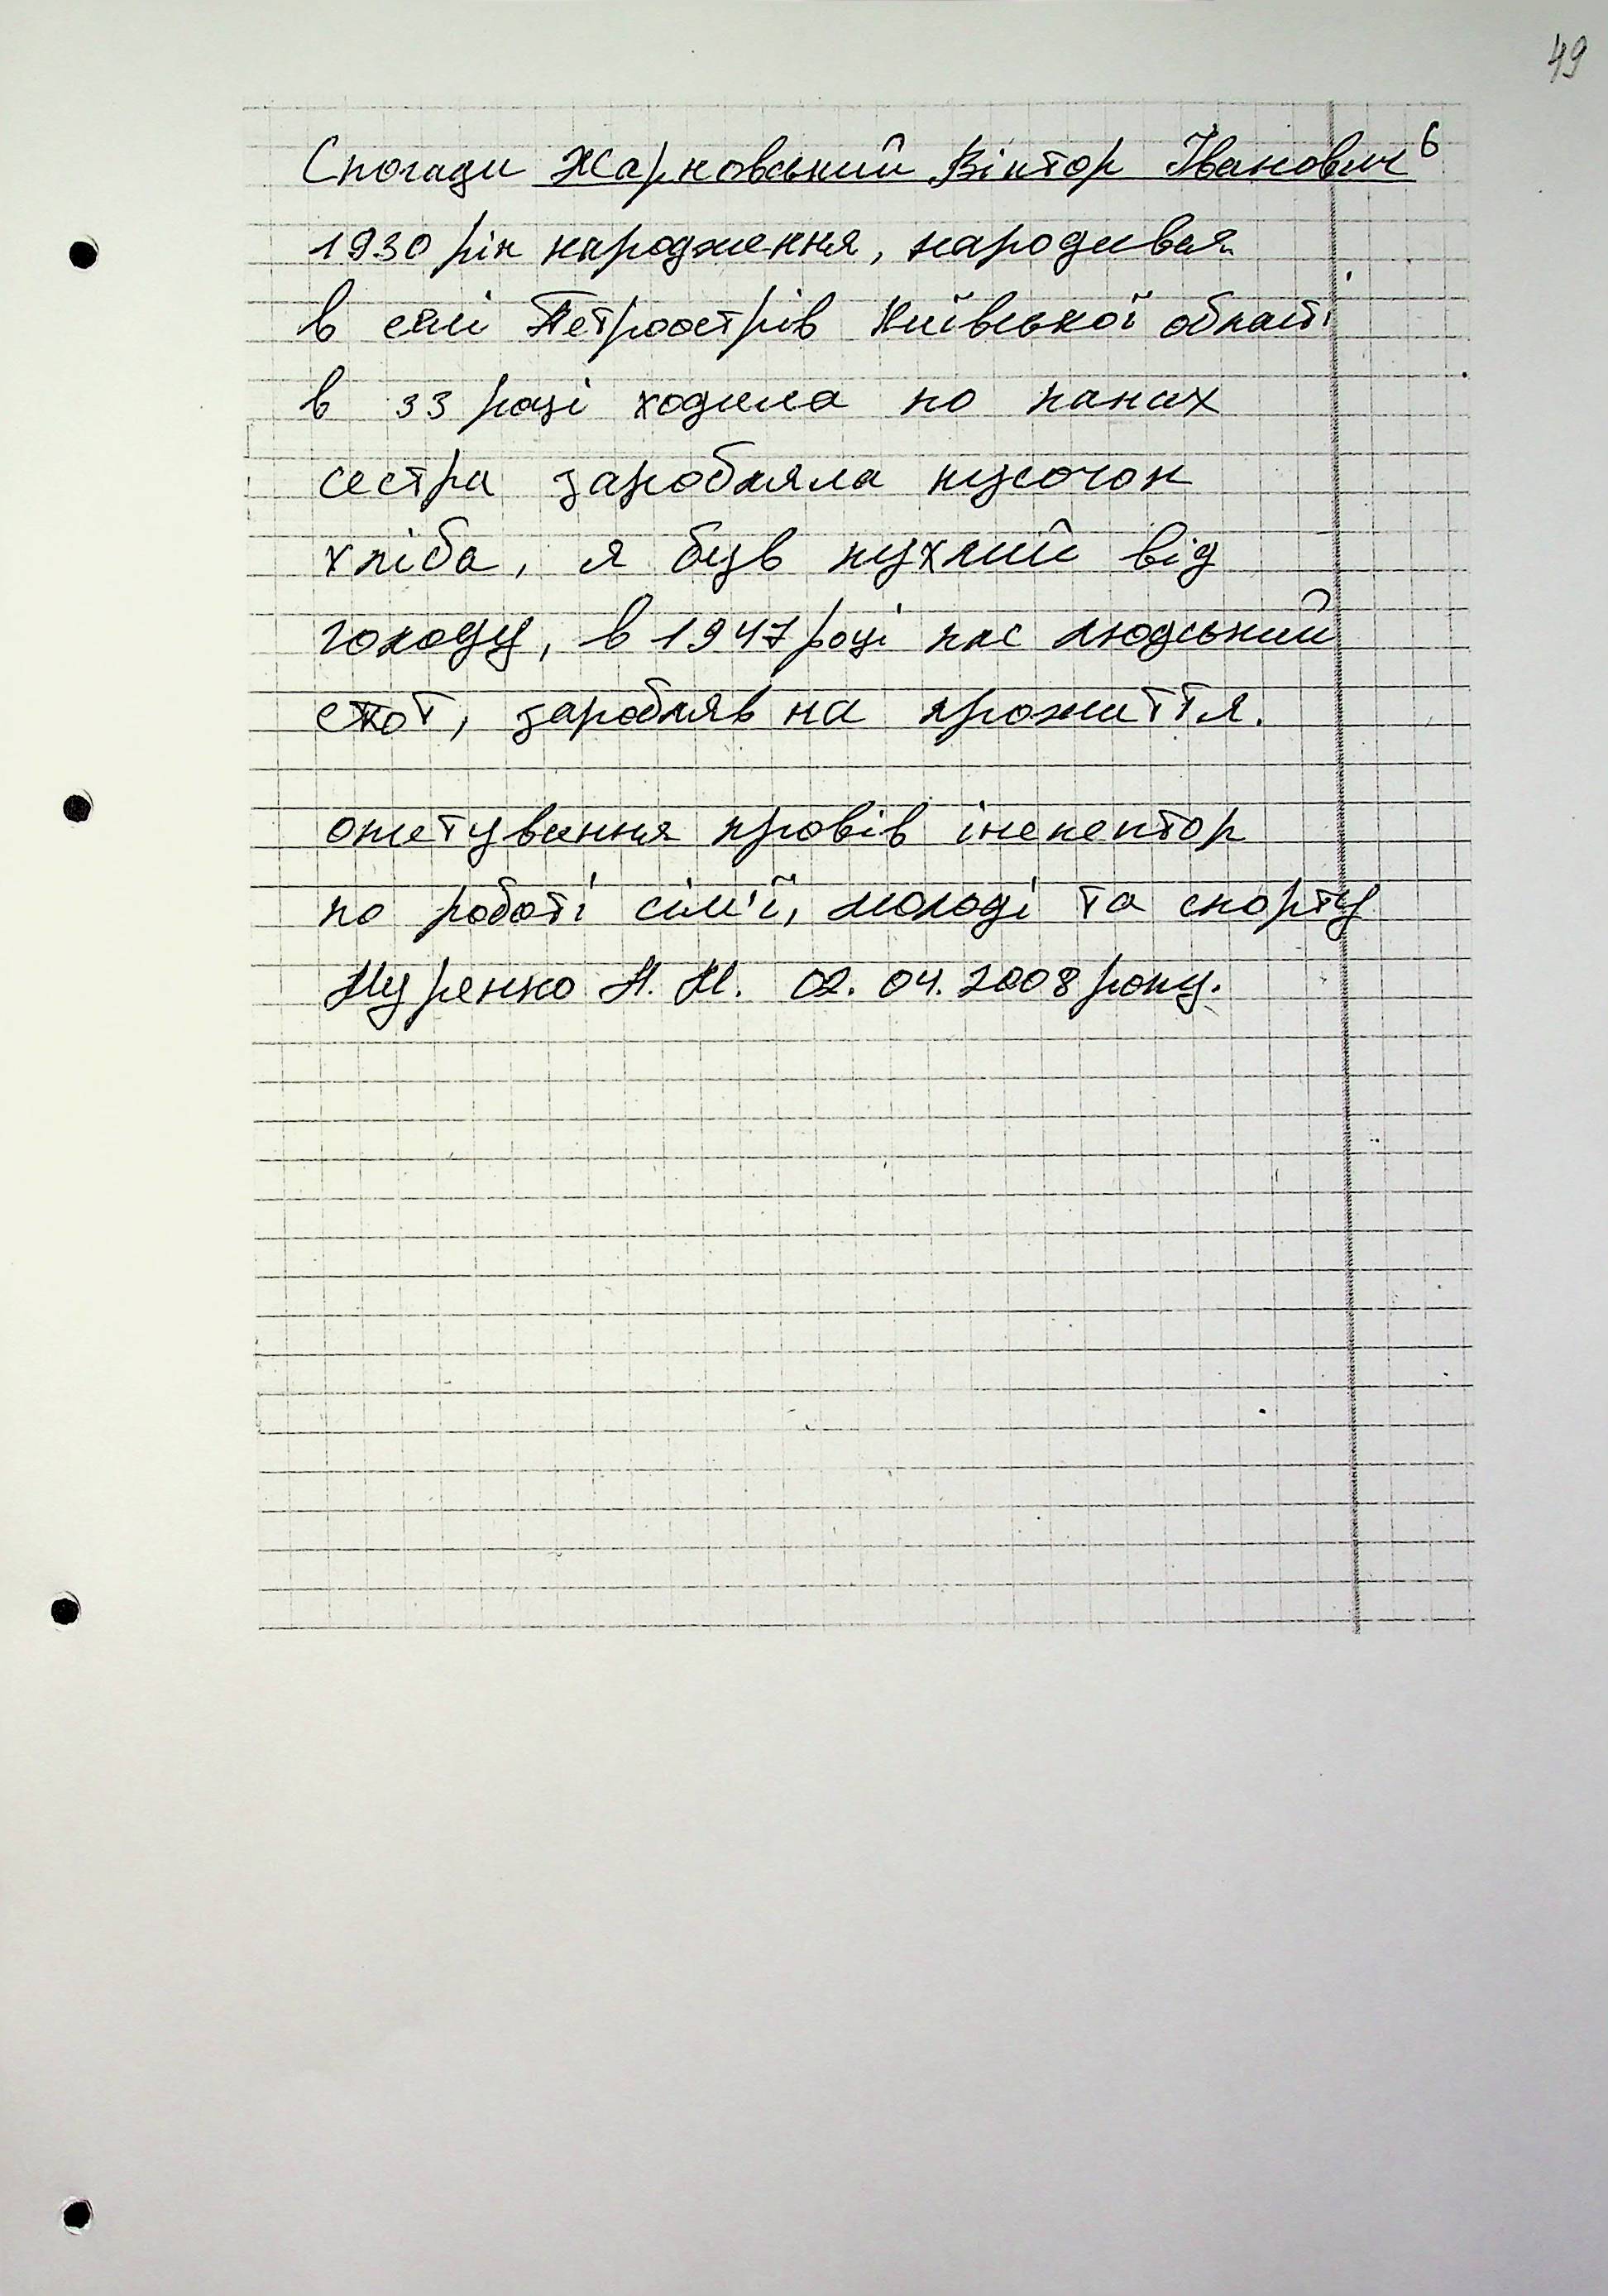 49
6
Спогади Жарковський Віктор Іванович
1930 рік народження, народився
в селі Петроострів Київської області
в 33 році ходила по панах
сестра заробляла кусочок
хліба, я був пухлий від
голоду, в 1947 році пас людський
скот, заробляв на прожиття.
опитування провів інспектор
по роботі сім'ї, молоді та спорту
02.04.2008 року.